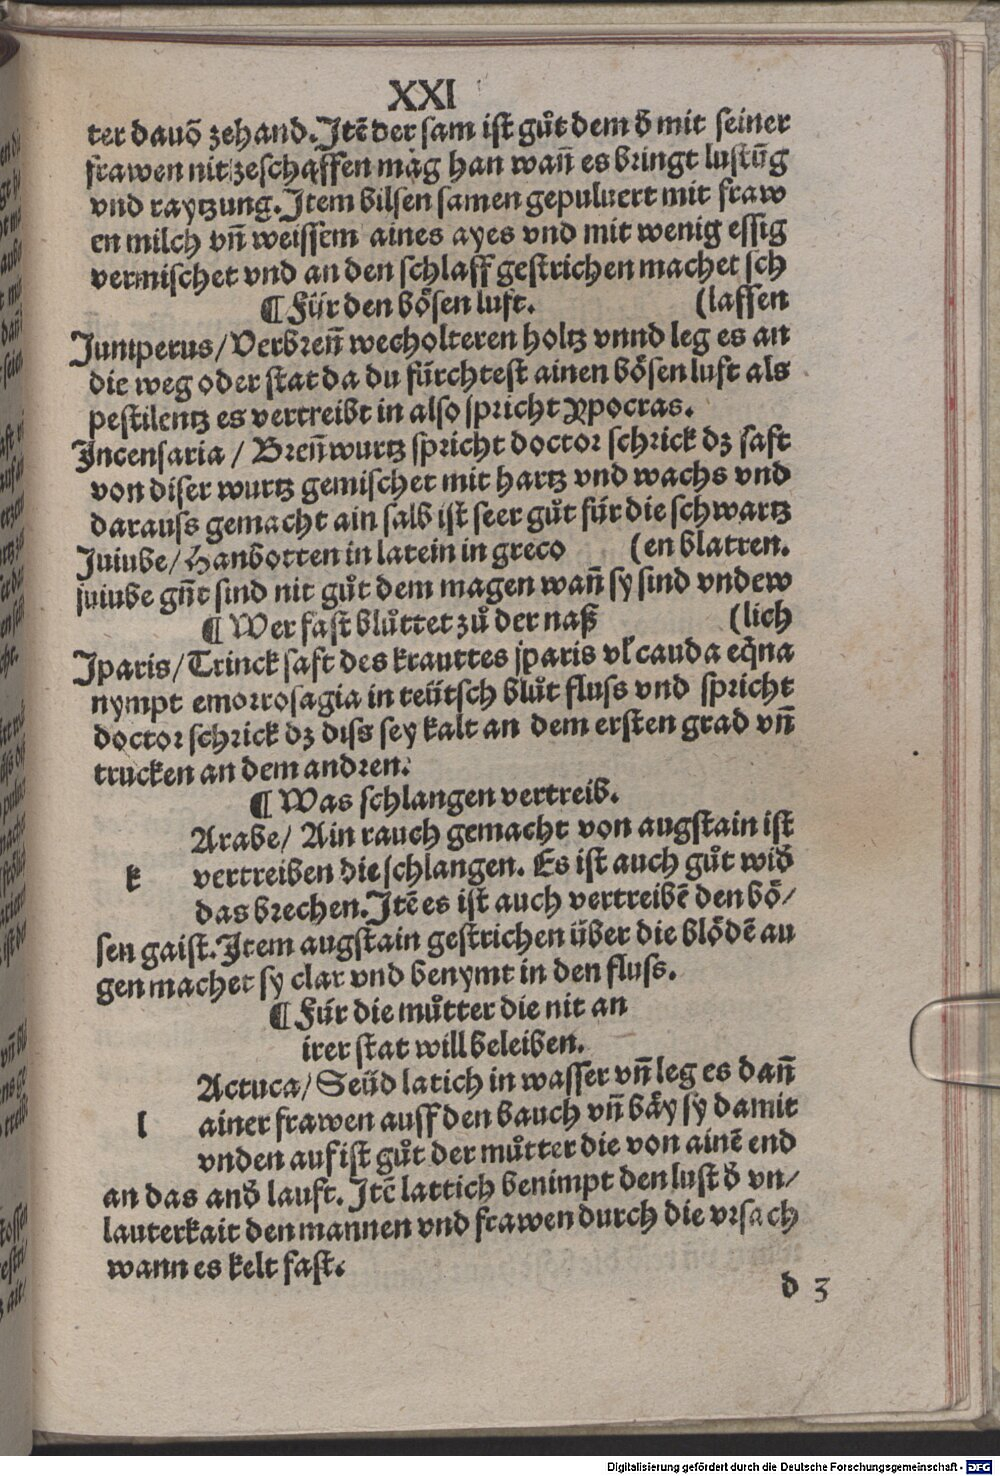 XXI
ter dauõ zehand. Jtẽ der sam ist gůt dem đ mit seiner
frawen nit zeschaffen mag han wañ es bringt lustũg
vnd raytzung. Jtem bilsen samen gepuluert mit fraw
en milch vñ weissem aines ayes vnd mit wenig essig
vermischet vnd an den schlaff gestrichen machet sch
¶ Für den bösen luft. (laffen
Juniperus / Verbreñ wecholteren holtz vnnd leg es an
die weg oder stat da du fürchtest ainen bösen luft als
pestilentz es vertreibt in also spricht ypocras.
Jncensaria / Breñwurtz spricht doctor schrick dz saft
von diser wurtz gemischet mit hartz vnd wachs vnd
darauss gemacht ain salb ist seer gůt für die schwartz
Juiube / Hanbotten in latein in greco (en blatren.
juiube gñt sind nit gůt dem magen wañ sy sind vndew
¶ Wer fast blůttet zů der naß (lich
Jparis / Trinck saft des krauttes jparis vł cauda eq̃na
nympt emorrosagia in teütsch blůt fluss vnd spricht
doctor schrick dz diss sey kalt an dem ersten grad vñ
trucken an dem andren.
¶ Was schlangen vertreib.
Arabe / Ain rauch gemacht von augstain ist
k vertreiben die schlangen. Es ist auch gůt wiđ
das brechen. Jtẽ es ist auch vertreibẽ den bö/
sen gaist. Jtem augstain gestrichen über die blödẽ au
gen machet sy clar vnd benymt in den fluss.
¶ Für die můtter die nit an
irer stat will beleiben.
Actuca / Seüd latich in wasser vñ leg es dañ
l ainer frawen auff den bauch vñ bäy sy damit
vnden auf ist gůt der můtter die von ainẽ end
an das anđ lauft. Jtẽ lattich benimpt den lust đ vn/
lauterkait den mannen vnd frawen durch die vrsach
wann es kelt fast.
d 3
Digitalisierung gefördert durch die Deutsche Forschungsgemeinschaft - DFG